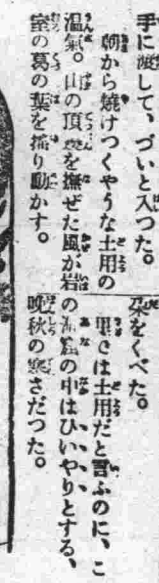 手に渡して、づいと入つた。
朝から焼けつくやうな土用の
温氣。山の頂邊を撫ぜた風が岩
室の葛の葉を搖り動かす。
朶をくべた。
里では土用だと言ふのに、こ
の洞窟の中はひいやりとする、
晩秋の寒さだつた。